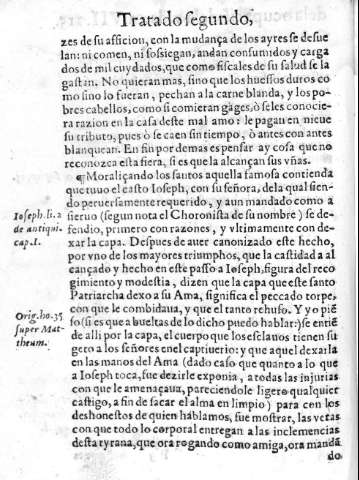 Tratado segundo,
zes de su afficion, con la mudança de los ayres se desue
lan: ni comen, ni sossiegan, andan consumidos y carga
dos de mil cuydados, que como fiscales de su salud se la
gastan. No quieran mas, sino que los huessos duros co
mo sino lo fueran, pechan a la carne blanda, y los po-
bres cabellos, como si comieran gages, ò seles conocie-
ra razion en la casa deste mal amo: le pagan en nieue
su tributo, pues ò se caen sin tiempo, ò antes con antes
blanquean. En fin por demas es pensar ay cosa que no
reconozca esta fiera, si es que la alcançan sus vñas.
¶Moraliçando los santos aquella famosa contienda
que tuuo el casto Ioseph, con su señora, de la qual sien-
do peruersamente requerido, y aun mandado como a
Ioseph. li. 2
de antiqui.
cap. 1.
sieruo (segun nota el Choronista de su nombre) se de-
fendio, primero con razones, y vltimamente con de-
xar la capa. Despues de auer canonizado este hecho,
por vno de los mayores triumphos, que la castidad a al
cançado y hecho en este passo a Ioseph, figura del reco
gimiento y modestia, dizen que la capa que este santo
Patriarcha dexo a su Ama, significa el peccado torpe,
Orig. ho. 35
super Mat-
theum.
con que le combidaua, y que el tanto rehuso. Y yo piē
so (si es que a bueltas de lo dicho puedo hablar:) se entiē
de alli por la capa, el cuerpo que los esclauos tienen su
geto a los señores en el captiuerio: y que aquel dexarla
en las manos del Ama (dado caso que quanto a lo que
a Ioseph toca, fue dezirle exponia, a todas las injurias
con que le amenaçaua, pareciendole ligero qualquier
castigo, a fin de sacar el alma en limpio) para con los
deshonestos de quien hablamos, fue mostrar, las veras
con que todo lo corporal entregan a las inclemencias
desta tyrana, que ora rogando como amiga, ora mandā
do